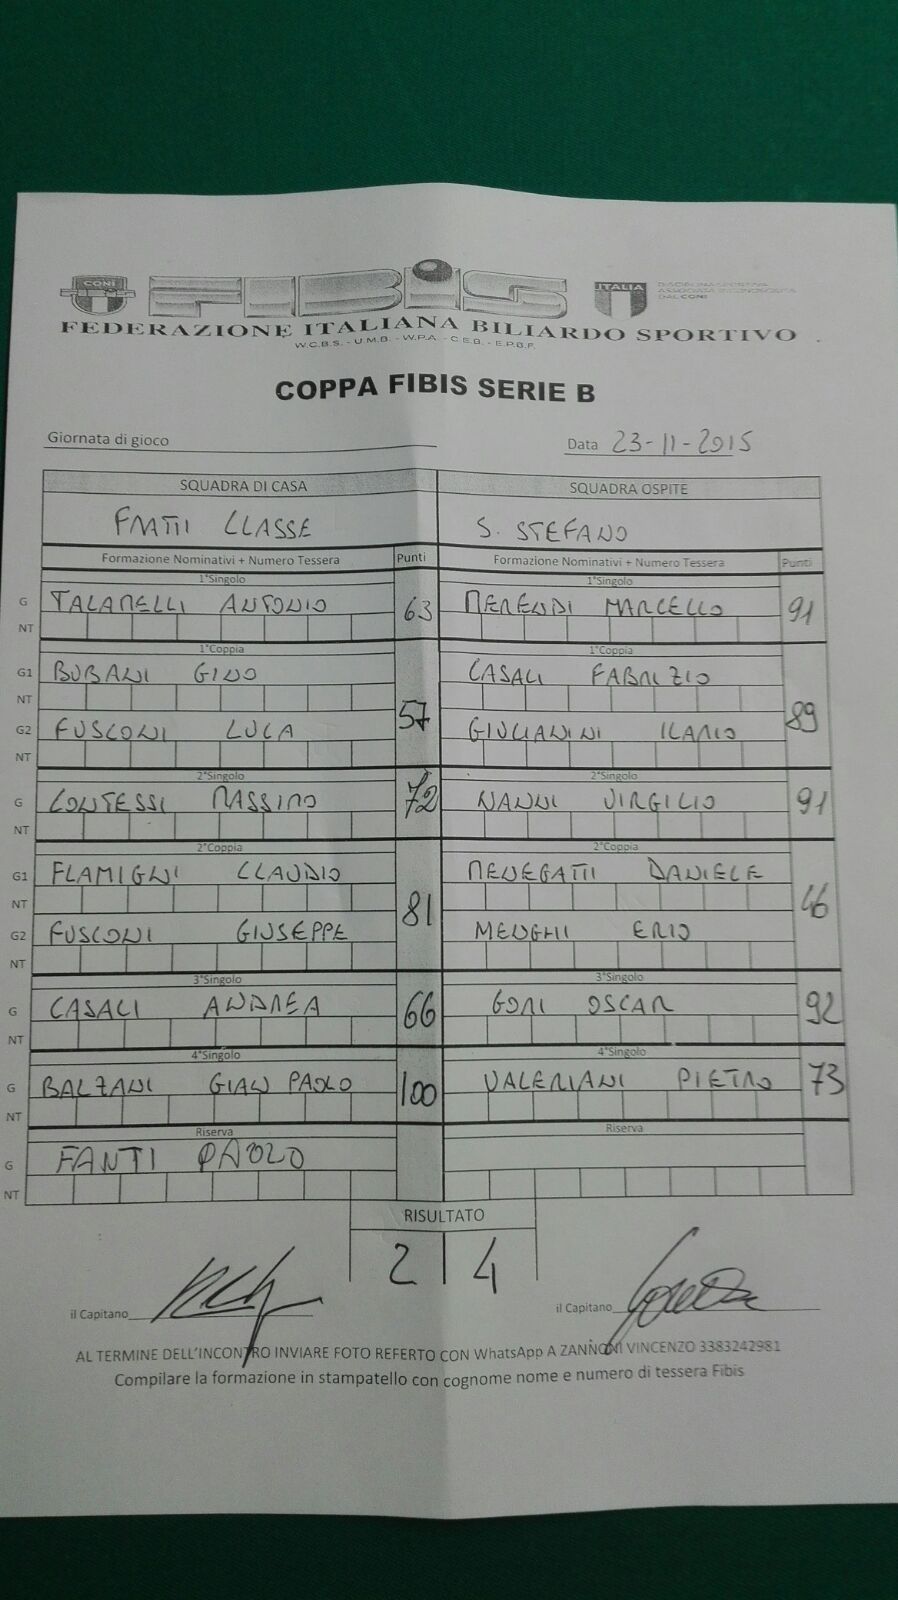 CONI
FIBIS
ITALIA
DISCIPLINA SPORTIVA
ASSOCIATA RICONOSCIUTA
DAL CONI
FEDERAZIONE ITALIANA BILIARDO SPORTIVO
W.C.B.S. - U.M.B. - W.P.A. - C.E.B. - E.P.B.F.
COPPA FIBIS SERIE B
Giornata di gioco
Data 23-11-2015
SQUADRA DI CASA SQUADRA OSPITE
FRATTI CLASSE S. STEFANO
Formazione Nominativi + Numero Tessera Punti Formazione Nominativi + Numero Tessera Punti
1°Singolo 1°Singolo
G TALAMELLI ANTONIO 63 MERENDI MARCELLO 91
NT
1°Coppia 1°Coppia
G1 BUBANI GINO CASALI FABRIZIO
NT 57 89
G2 FUSCONI LUCA GIULIANINI ILARIO
NT
2°Singolo 2°Singolo
G CONTESSI MASSIMO 72 NANNI VIRGILIO 91
NT
2°Coppia 2°Coppia
G1 FLAMIGNI CLAUDIO MENEGATTI DANIELE
NT 81 46
G2 FUSCONI GIUSEPPE MENGHI ERIO
NT
3°Singolo 3°Singolo
G CASALI ANDREA 66 GORI OSCAR 92
NT
4°Singolo 4°Singolo
G BALZANI GIAN PAOLO 100 VALERIANI PIETRO 73
NT
Riserva Riserva
G FANTI PAOLO
NT
RISULTATO
2 4
il Capitano il Capitano
AL TERMINE DELL'INCONTRO INVIARE FOTO REFERTO CON WhatsApp A ZANNONI VINCENZO 3383242981
Compilare la formazione in stampatello con cognome nome e numero di tessera Fibis